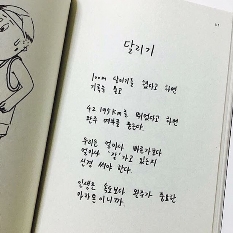 달리기
100m 달리기를 했다고 하면
기록을 묻고
42.195km를 뛰었다고 하면
완주 여부를 묻는다.
우리는 얼마나 빠르기보다
얼마나 '잘' 가고 있는지
신경 써야 한다.
인생은 속도보다 완주가 중요한
마라톤이니까.